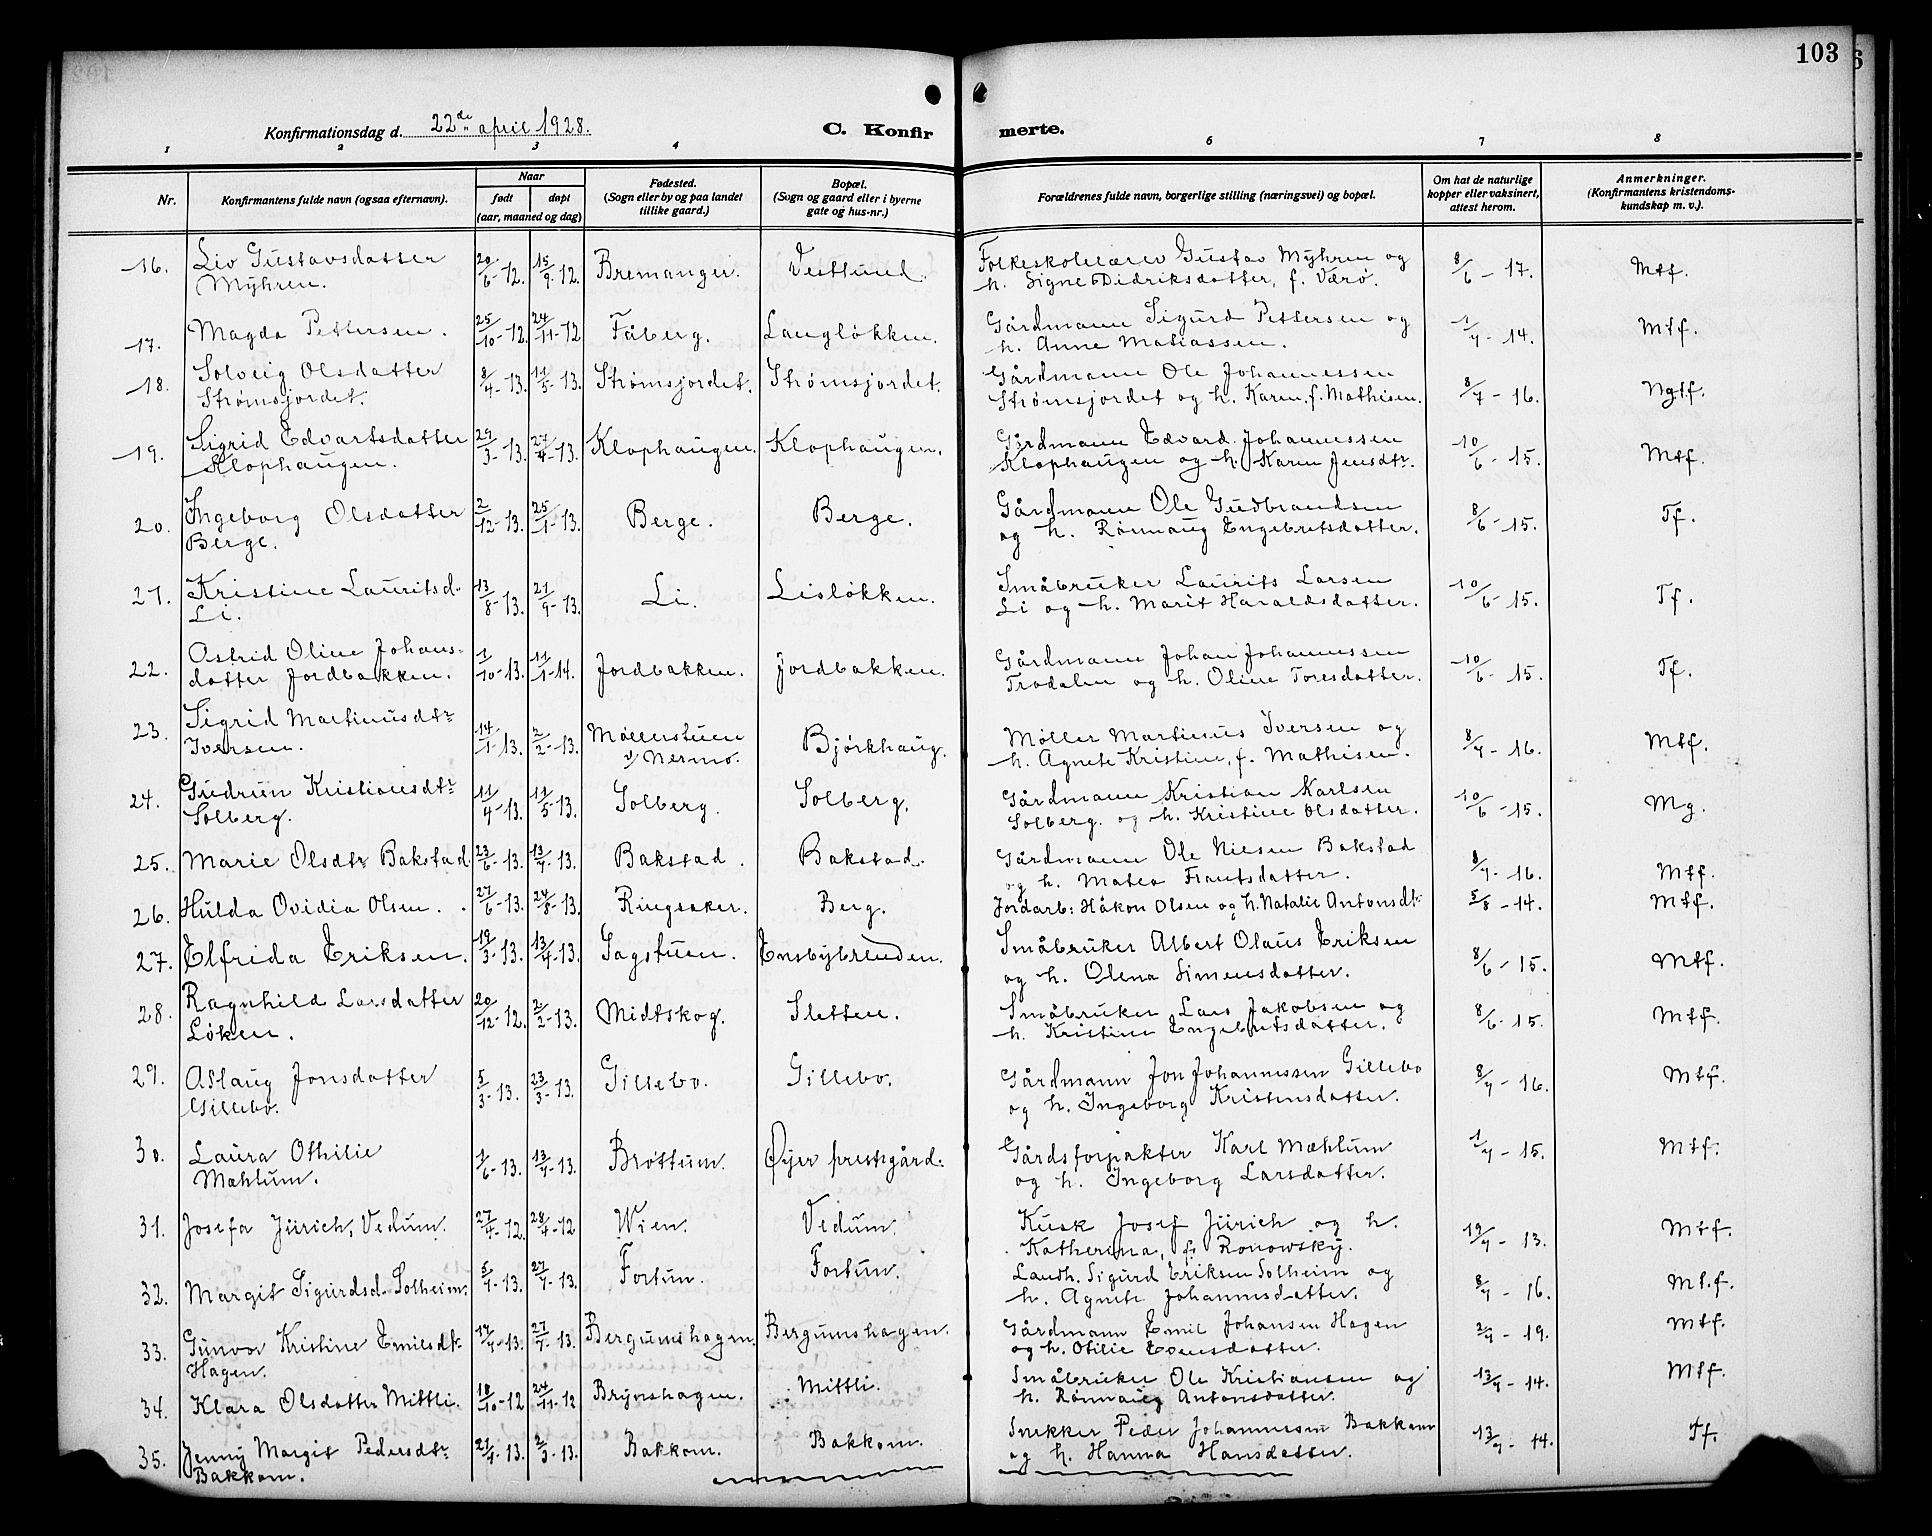 103
Konfirmationsdag d. 22de april 1928.
C. Konfirmerte.
1 2 3 4 6 7 8
Nr.
Konfirmantens fulde navn (ogsaa efternavn).
Naar
født døpt
(aar, maaned og dag)
Fødested.
(Sogn eller by og paa landet
tillike gaard.)
Bopæl.
(Sogn og gaard eller i byerne
gate og hus-nr.)
Forældrenes fulde navn, borgerlige stilling (næringsvei) og bopæl.
Om hat de naturlige
kopper eller vaksinert,
attest herom.
Anmerkninger.
(Konfirmantens kristendoms-
kundskap m. v.).
16. Liv Gustavsdatter 20/6-12. 15/9-12. Bremanger. Vestlund. Folkeskolelærer Gustav Myhren og 8/6-17. Mtf.
Myhren. h. Signe Didriksdatter, f. Værø.
17. Magda Pettersen. 25/10-12. 24/11-12 Fåberg. Langløkken. Gårdmann Sigurd Pettersen og 1/7-14. Mtf.
h. Anne Matiassen.
18. Solveig Olsdatter 8/4-13. 11/5-13. Strømsjordet. Strømsjordet. Gårdmann Ole Johannessen 8/7-16. Ngtf.
Strømsjordet. Strømsjordet og h. Karen, f. Mathisen.
19. Sigrid Edvartsdatter 29/3-13. 27/4-13. Klophaugen. Klophaugen. Gårdmann Edvard Johannessen 10/6-15. Mtf.
Klophaugen. Klophaugen og h. Karen Jensdtr.
20. Ingeborg Olsdatter 2/12-13. 25/1-13. Berge. Berge. Gårdmann Ole Gudbrandsen 8/6-15. Tf.
Berge. og h. Rønnaug Engebretsdatter.
21. Kristine Lauritsd. 13/8-13. 21/9-13. Li. Lisløkken. Småbruker Laurits Larsen 10/6-15. Tf.
Li. Li og h. Marit Haraldsdatter.
22. Astrid Oline Johans- 1/10-13. 11/1-14. Jordbakken. Jordbakken. Gårdmann Johan Johannessen 10/6-15. Tf.
datter Jordbakken. Trodalen og h. Oline Toresdatter.
23. Sigrid Martinusdtr 14/1-13. 2/2-13. Møllerstuen Bjørkhaug. Møller Martinus Iversen og 8/7-16. Mtf.
Iversen. v/ Nermo. h. Agnete Kristine, f. Mathisen.
24. Gudrun Kristiansdtr 11/4-13. 11/5-13. Solberg. Solberg. Gårdmann Kristian Karlsen 10/6-15. Mg.
Solberg. Solberg. og h. Kristine Olsdatter.
25. Marie Olsdtr Bakstad. 23/6-13. 13/7-13. Bakstad. Bakstad. Gårdmann Ole Nilsen Bakstad 8/7-16. Mtf.
og h. Matea Frantsdatter.
26. Hulda Ovidia Olsen. 27/6-13. 24/8-13. Ringsaker. Berg. Jordarb: Håkon Olsen og h. Natalie Antonsdt. 5/8-14. Mtf.
27. Elfrida Eriksen. 19/3-13. 13/4-13. Sagstuen. Ensbybrenden. Småbruker Albert Olaus Eriksen 8/6-15. Mtf.
og h. Olena Simensdatter.
28. Ragnhild Larsdatter 20/12-12. 2/2-13. Midtskog. Sletten. Småbruker Lars Jakobsen og 8/6-15. Mtf.
Løken. h. Kristine Engebretsdatter.
29. Aslaug Jonsdatter 5/3-13. 23/3-13. Gillebo. Gillebo. Gårdmann Jon Johannessen Gillebo 8/7-16. Mtf.
Gillebo. og h. Ingeborg Kristensdatter.
30. Laura Othilie 1/6-13. 13/7-13. Brøttum. Øyer prestgård. Gårdsforpakter Karl Mæhlum 1/7-15. Mtf.
Mæhlum. og h. Ingeborg Larsdatter.
31. Josefa Jürich, Vedum. 27/4-12. 28/4-12 Wien. Vedum. Kusk Josef Jürich og h. 19/7-13. Mtf.
Katherina, f. Ronowsky.
32. Margit Sigurdsd. Solheim. 5/7-13. 27/7-13. Fortun. Fortun. Landh. Sigurd Eriksen Solheim og 8/7-16. Mt.f.
h. Agnete Johannesdatter.
33. Gunvor Kristine Emilsdt. 17/7-13. 27/7-13. Bergumshagen. Bergumshagen. Gårdmann Emil Johansen Hagen 2/7-19. Mtf.
Hagen. og h. Otilie Evensdatter.
34. Klara Olsdatter Mittli. 18/10-12 24/11-12 Brynshagen. Mittli. Småbruker Ole Kristiansen og 13/7-14. Mtf.
h. Rønnaug Antonsdatter.
35. Jenny Margit Pedersdtr 21/1-13. 2/3-13. Bakkom. Bakkom. Snekker Peder Johannessen Bakkom 13/7-14. Tf.
Bakkom. og h. Hanna Hansdatter.